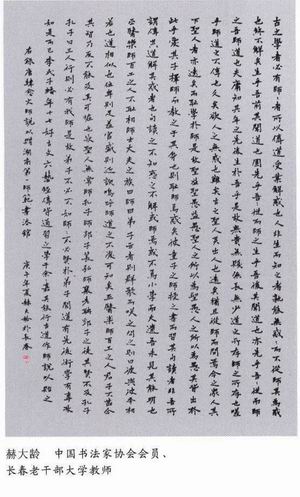 古之學者必有師師者所以傳道受業解惑也人非生而知之者孰能無惑惑而不從師其為惑
也終不解矣生乎吾前其聞道也固先乎吾吾從而師之生乎吾後其聞道也亦先乎吾吾從而師
之吾師道也夫庸知其年之先後生於吾乎是故無貴無賤無長無少道之所存師之所存也嗟
乎師道之不傳也久矣欲人之無惑也難矣古之聖人其出人也遠矣猶且從師而問焉今之眾人其
下聖人也亦遠矣而恥學於師是故聖益聖愚益愚聖人之所以為聖愚人之所以為愚其皆出於
此乎愛其子擇師而教之於其身也則恥師焉惑矣彼童子之師授之書而習其句讀者非吾所
謂傳其道解其惑者也句讀之不知惑之不解或師焉或不焉小學而大遺吾未見其明也
巫醫樂師百工之人不恥相師士大夫之族曰師曰弟子云者則群聚而笑之問之則曰彼與彼年相
若也道相似也位卑則足羞官盛則近諛嗚呼師道之不復可知矣巫醫樂師百工之人君子不齒今
其智乃反不能及其可怪也歟聖人無常師孔子師郯子萇弘師襄老聃郯子之徒其賢不及孔子
孔子曰三人行則必有我師是故弟子不必不如師師不必賢於弟子聞道有先後術業有專攻
如是而已李氏子蟠年十七好古文六藝經傳皆通習之學於余余嘉其能行古道作師說以貽之
右錄唐韓愈文師說以贈湖南第一師範書法館 年夏赫大齡於長春
赫大龄 中国书法家协会会员、
长春老干部大学教师